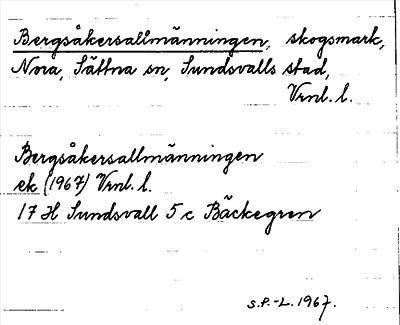 Bergsåkersallmänningen, skogsmark,
Nora, Sättna sn, Sundsvalls stad,
Vrnl. l.
Bergsåkersallmänningen
ek (1967) Vrnl. l.
17 H Sundsvall 5 c Bäckegren
S.P.-L. 1967.